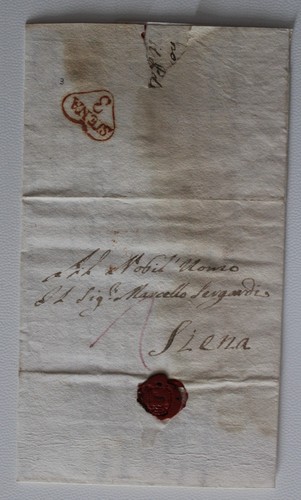 SIENA
3
All Nobil Uomo
Il Sigr. Marcello Sergardi
Siena